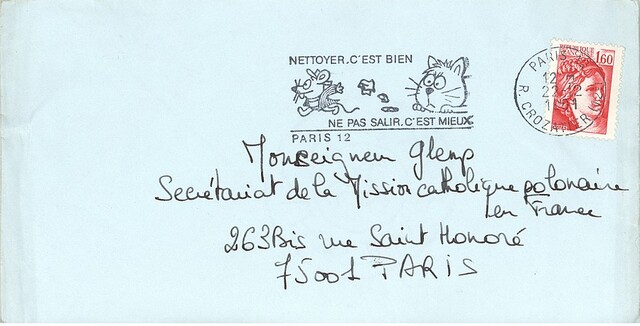 NETTOYER.C'EST BIEN
NE PAS SALIR.C'EST MIEUX
PARIS 12
PARIS
12
22-12
R. CROZATIER
1,60
Monseigneur Glemp
Secrétariat de la Mission catholique polonaise
en France
263Bis rue Saint Honoré
75001 PARIS